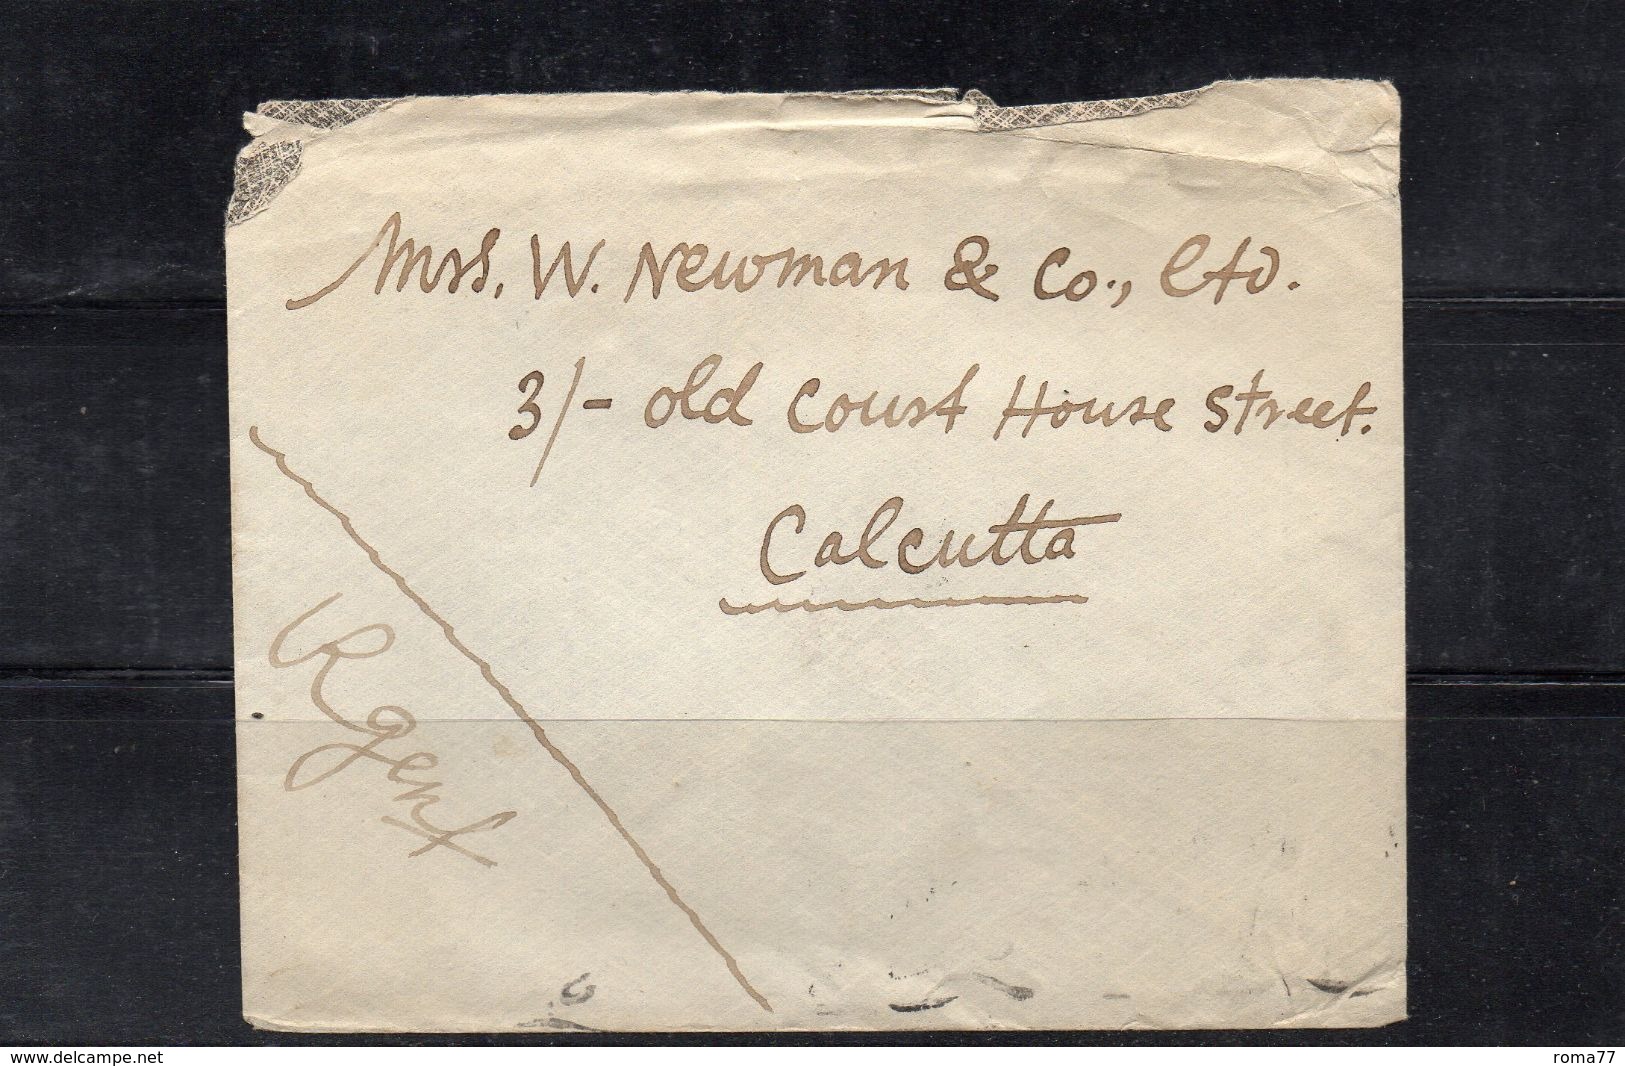 Mrs. W. Newman & Co., Ltd.
3/- old Court House Street.
Calcutta
Rgent
www.delcampe.net
roma77